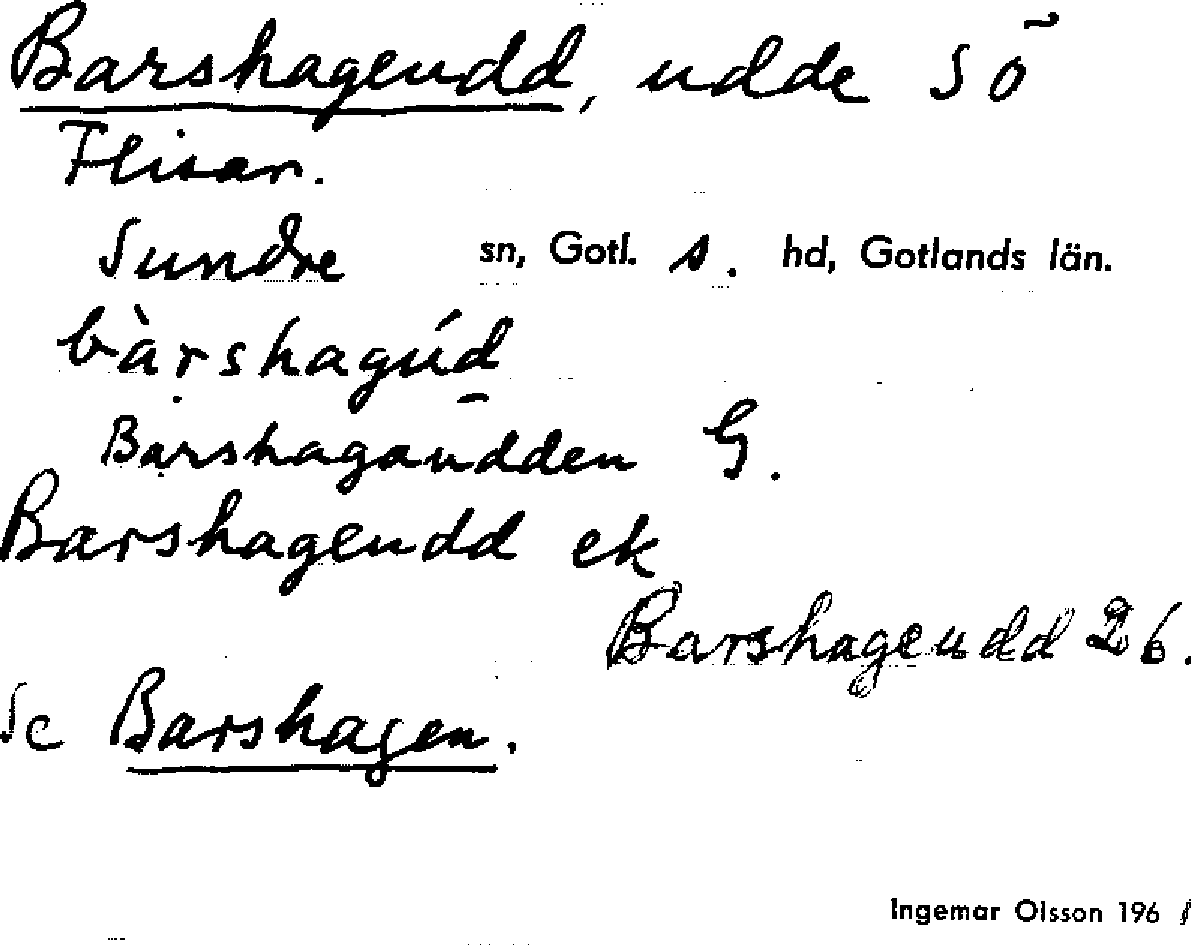 Barshageudd, udde SÖ
Flisar.
Sundre sn, Gotl. s. hd, Gotlands län.
bàrshagúd
Barshagaudden G.
Barshageudd ek
Barshageudd 26.
Se Barshagen.
Ingemar Olsson 1961